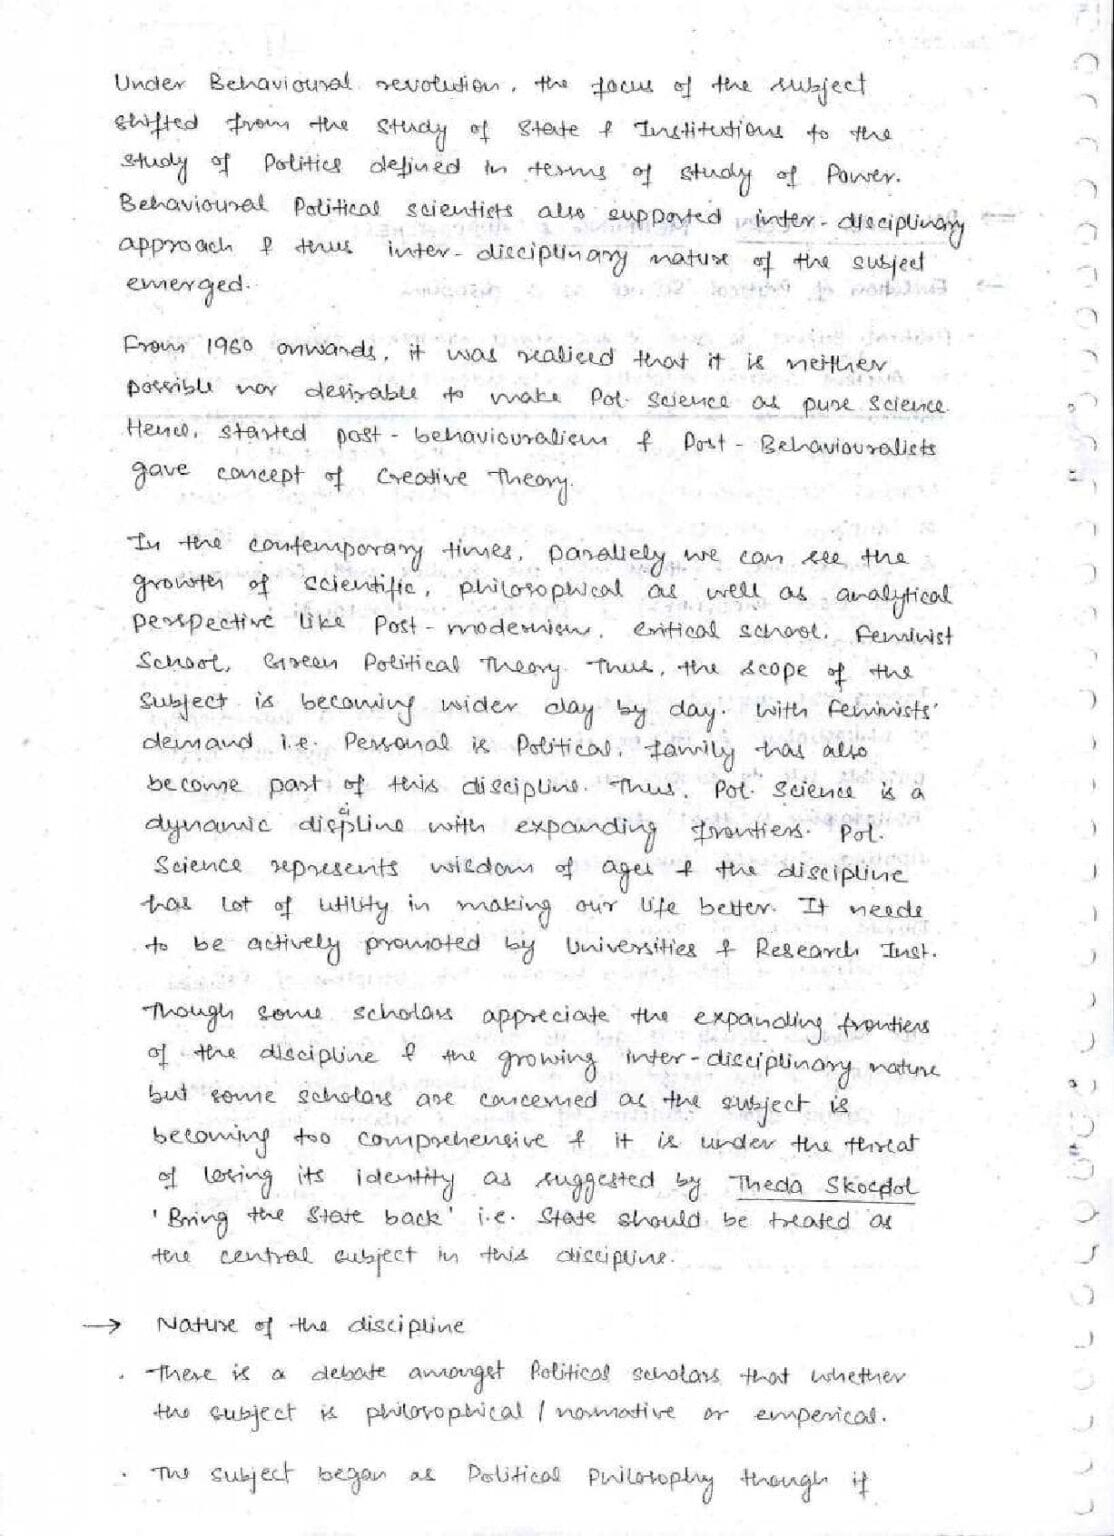 Under Behavioural revolution, the focus of the subject
shifted from the study of State & Institutions to the
study of Politics defined in terms of study of Power.
Behavioural Political scientists also supported inter-disciplinary
approach & thus inter-disciplinary nature of the subject
emerged.
From 1960 onwards, it was realised that it is neither
possible nor desirable to make Pol. Science as pure science.
Hence, started post-behaviouralism & Post-Behaviouralists
gave concept of Creative Theory.
In the contemporary times, parallely we can see the
growth of scientific, philosophical as well as analytical
perspective like Post-modernism, critical school, Feminist
School, Green Political Theory. Thus, the scope of the
subject is becoming wider day by day. With feminists'
demand i.e. Personal is Political, family has also
become part of this discipline. Thus, Pol. Science is a
dynamic discipline with expanding frontiers. Pol.
Science represents wisdom of ages & the discipline
has lot of utility in making our life better. It needs
to be actively promoted by Universities & Research Inst.
Though some scholars appreciate the expanding frontiers
of the discipline & the growing inter-disciplinary nature
but some scholars are concerned as the subject is
becoming too comprehensive & it is under the threat
of losing its identity as suggested by Theda Skocpol
'Bring the State back' i.e. State should be treated as
the central subject in this discipline.
→ Nature of the discipline
. There is a debate amongst Political scholars that whether
the subject is philosophical / normative or emperical.
. The subject began as Political Philosophy though if